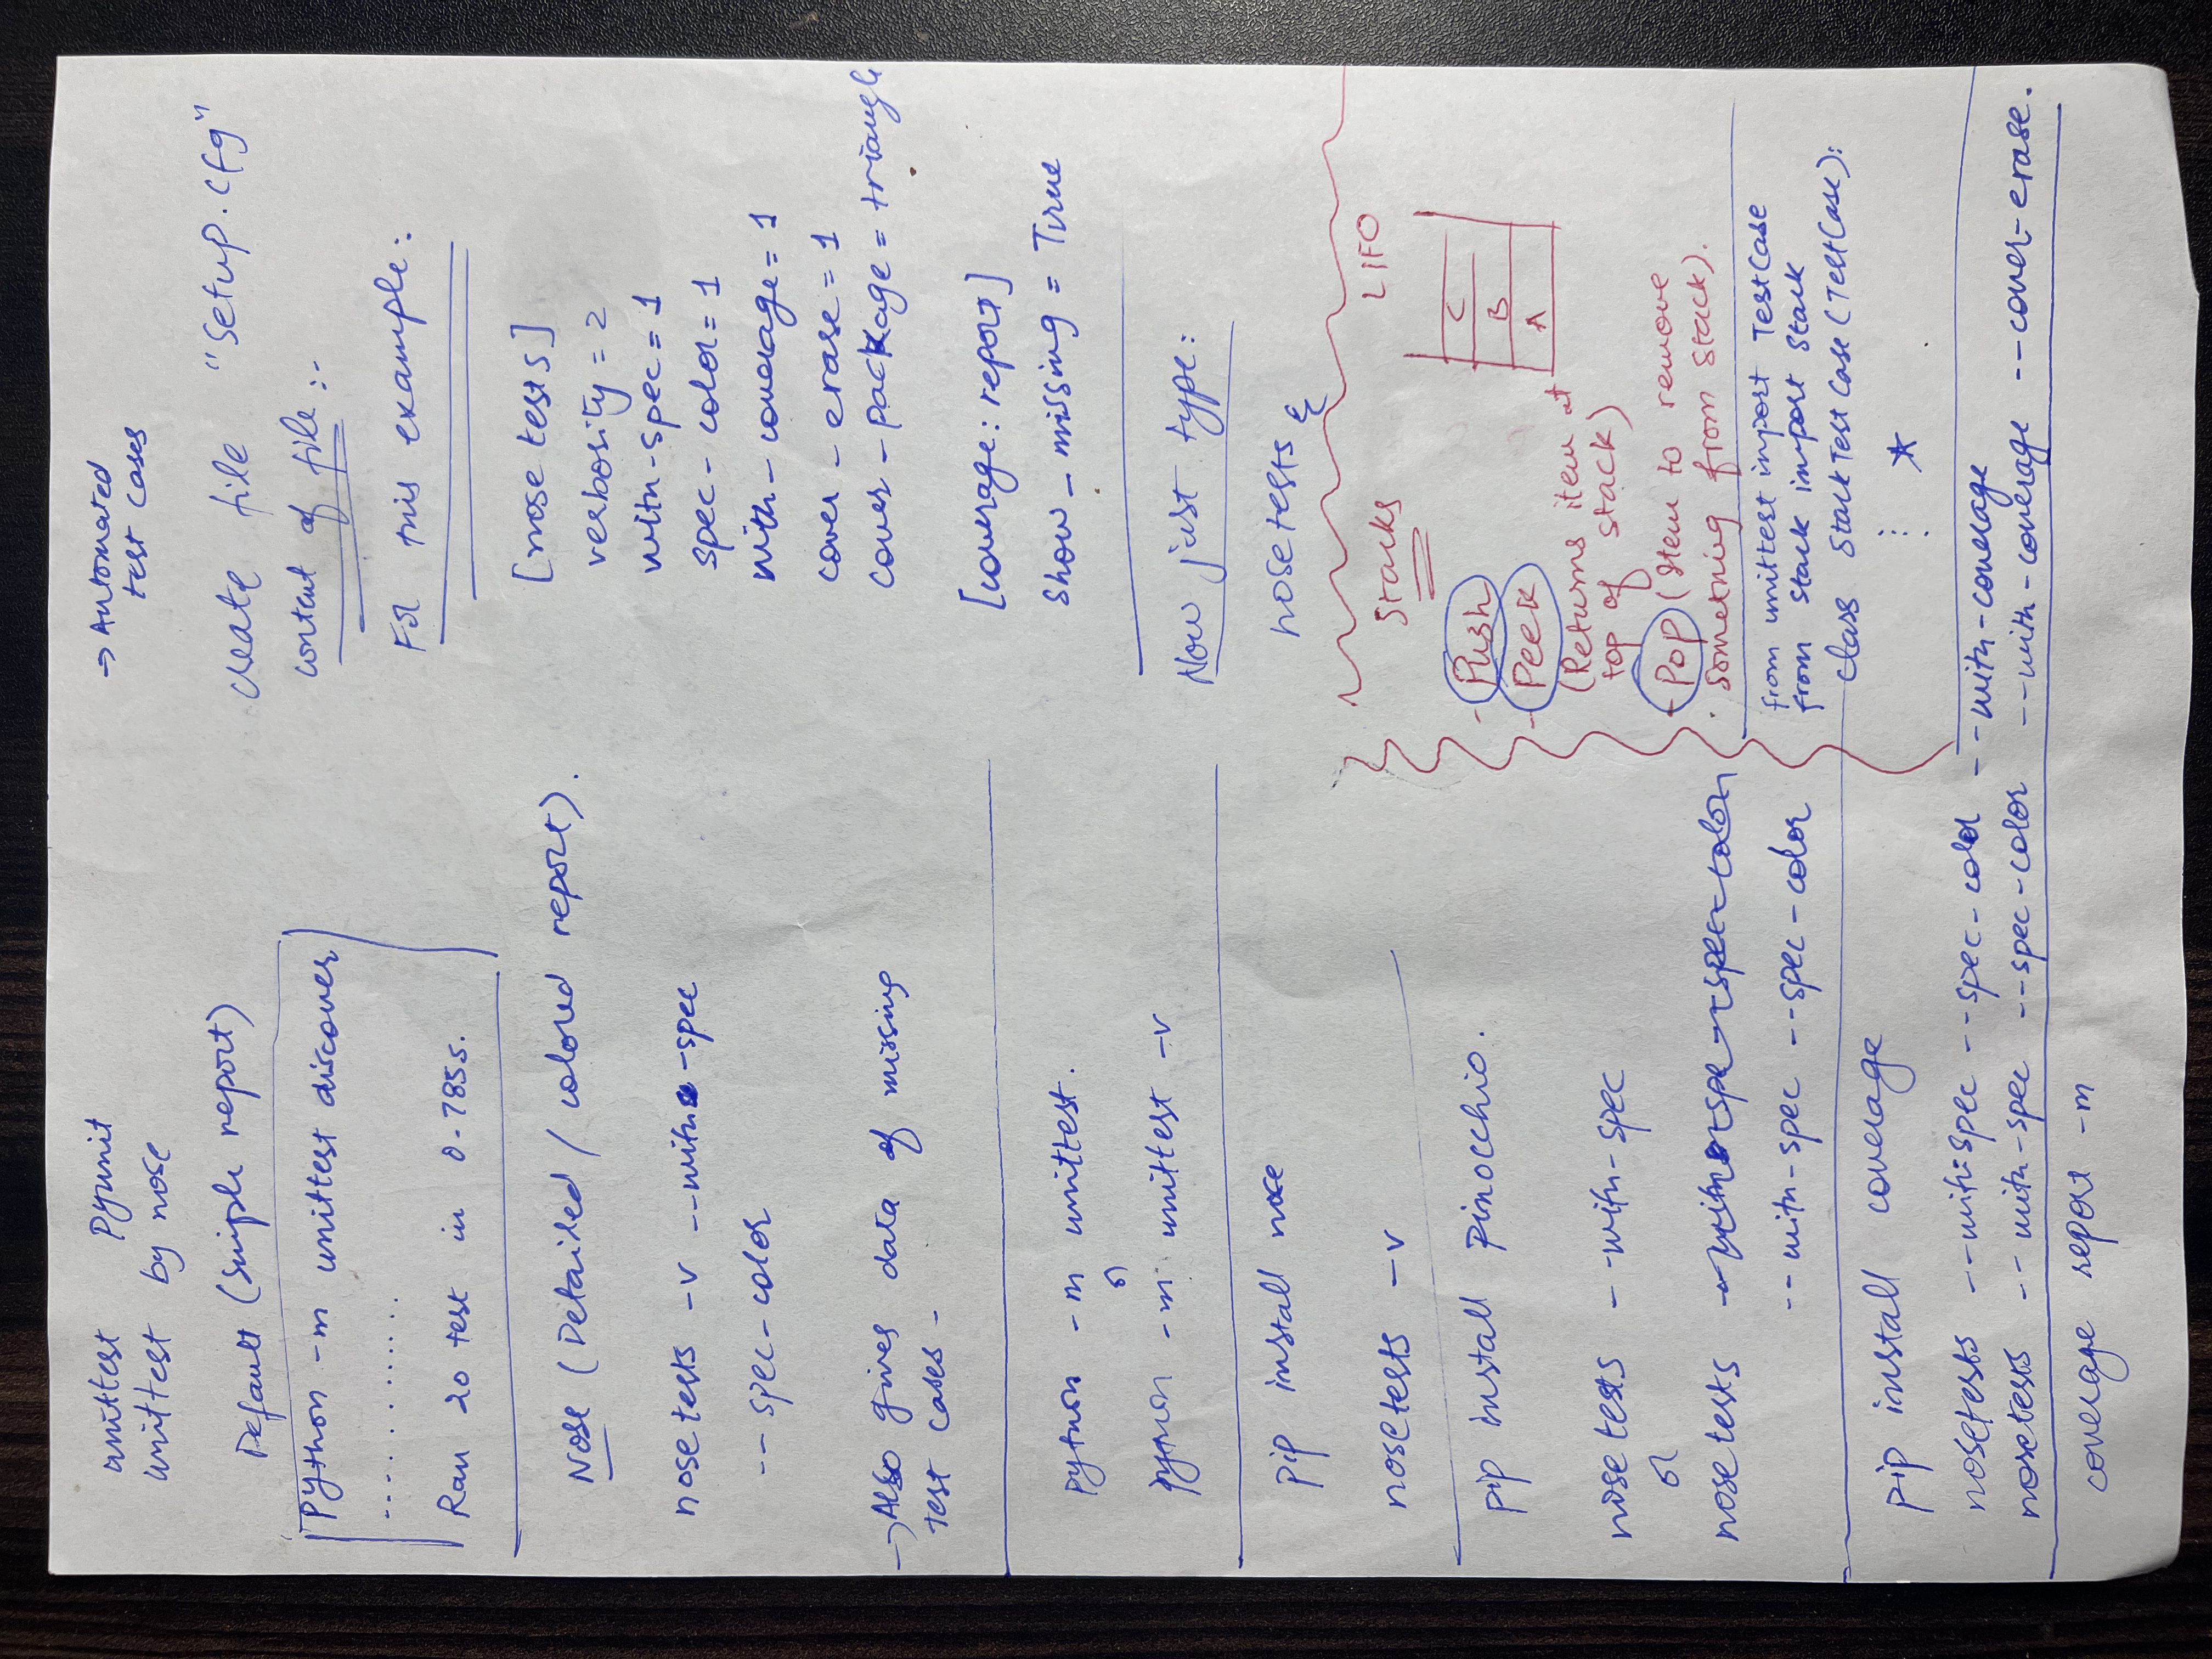 unittest Pyunit
unittest by nose
Default (simple report)
Python -m unittest discover
............
Ran 20 test in 0.785s.
Nose (Detailed / colored report).
nosetests -v --with-spec
-- spec-color
→ Also gives data of missing
test cases -
Python -m unittest.
or
Python -m unittest -v
pip install nose
nosetests -v
pip install pinocchio.
nosetests --with-spec
or
nosetests
--with-spec --spec-color
pip install coverage
nosetests --with spec --spec-color --with-coverage
nosetests --with-spec --spec-color --with-coverage --cover-erase.
coverage report -m
→ Automated
test cases
create file "setup.cfg"
content of file :-
For this example:
[nosetests]
verbosity=2
with-spec=1
spec-color=1
with-coverage=1
cover-erase=1
cover-package=triangle
[coverage: report]
show_missing = True
Now just type:
nosetests
Stacks LIFO
- Push
- Peek
(Returns item at
top of stack)
- Pop (Item to remove
something from stack).
C
B
A
from unittest import TestCase
from stack import Stack
class StackTestCase (TestCase):